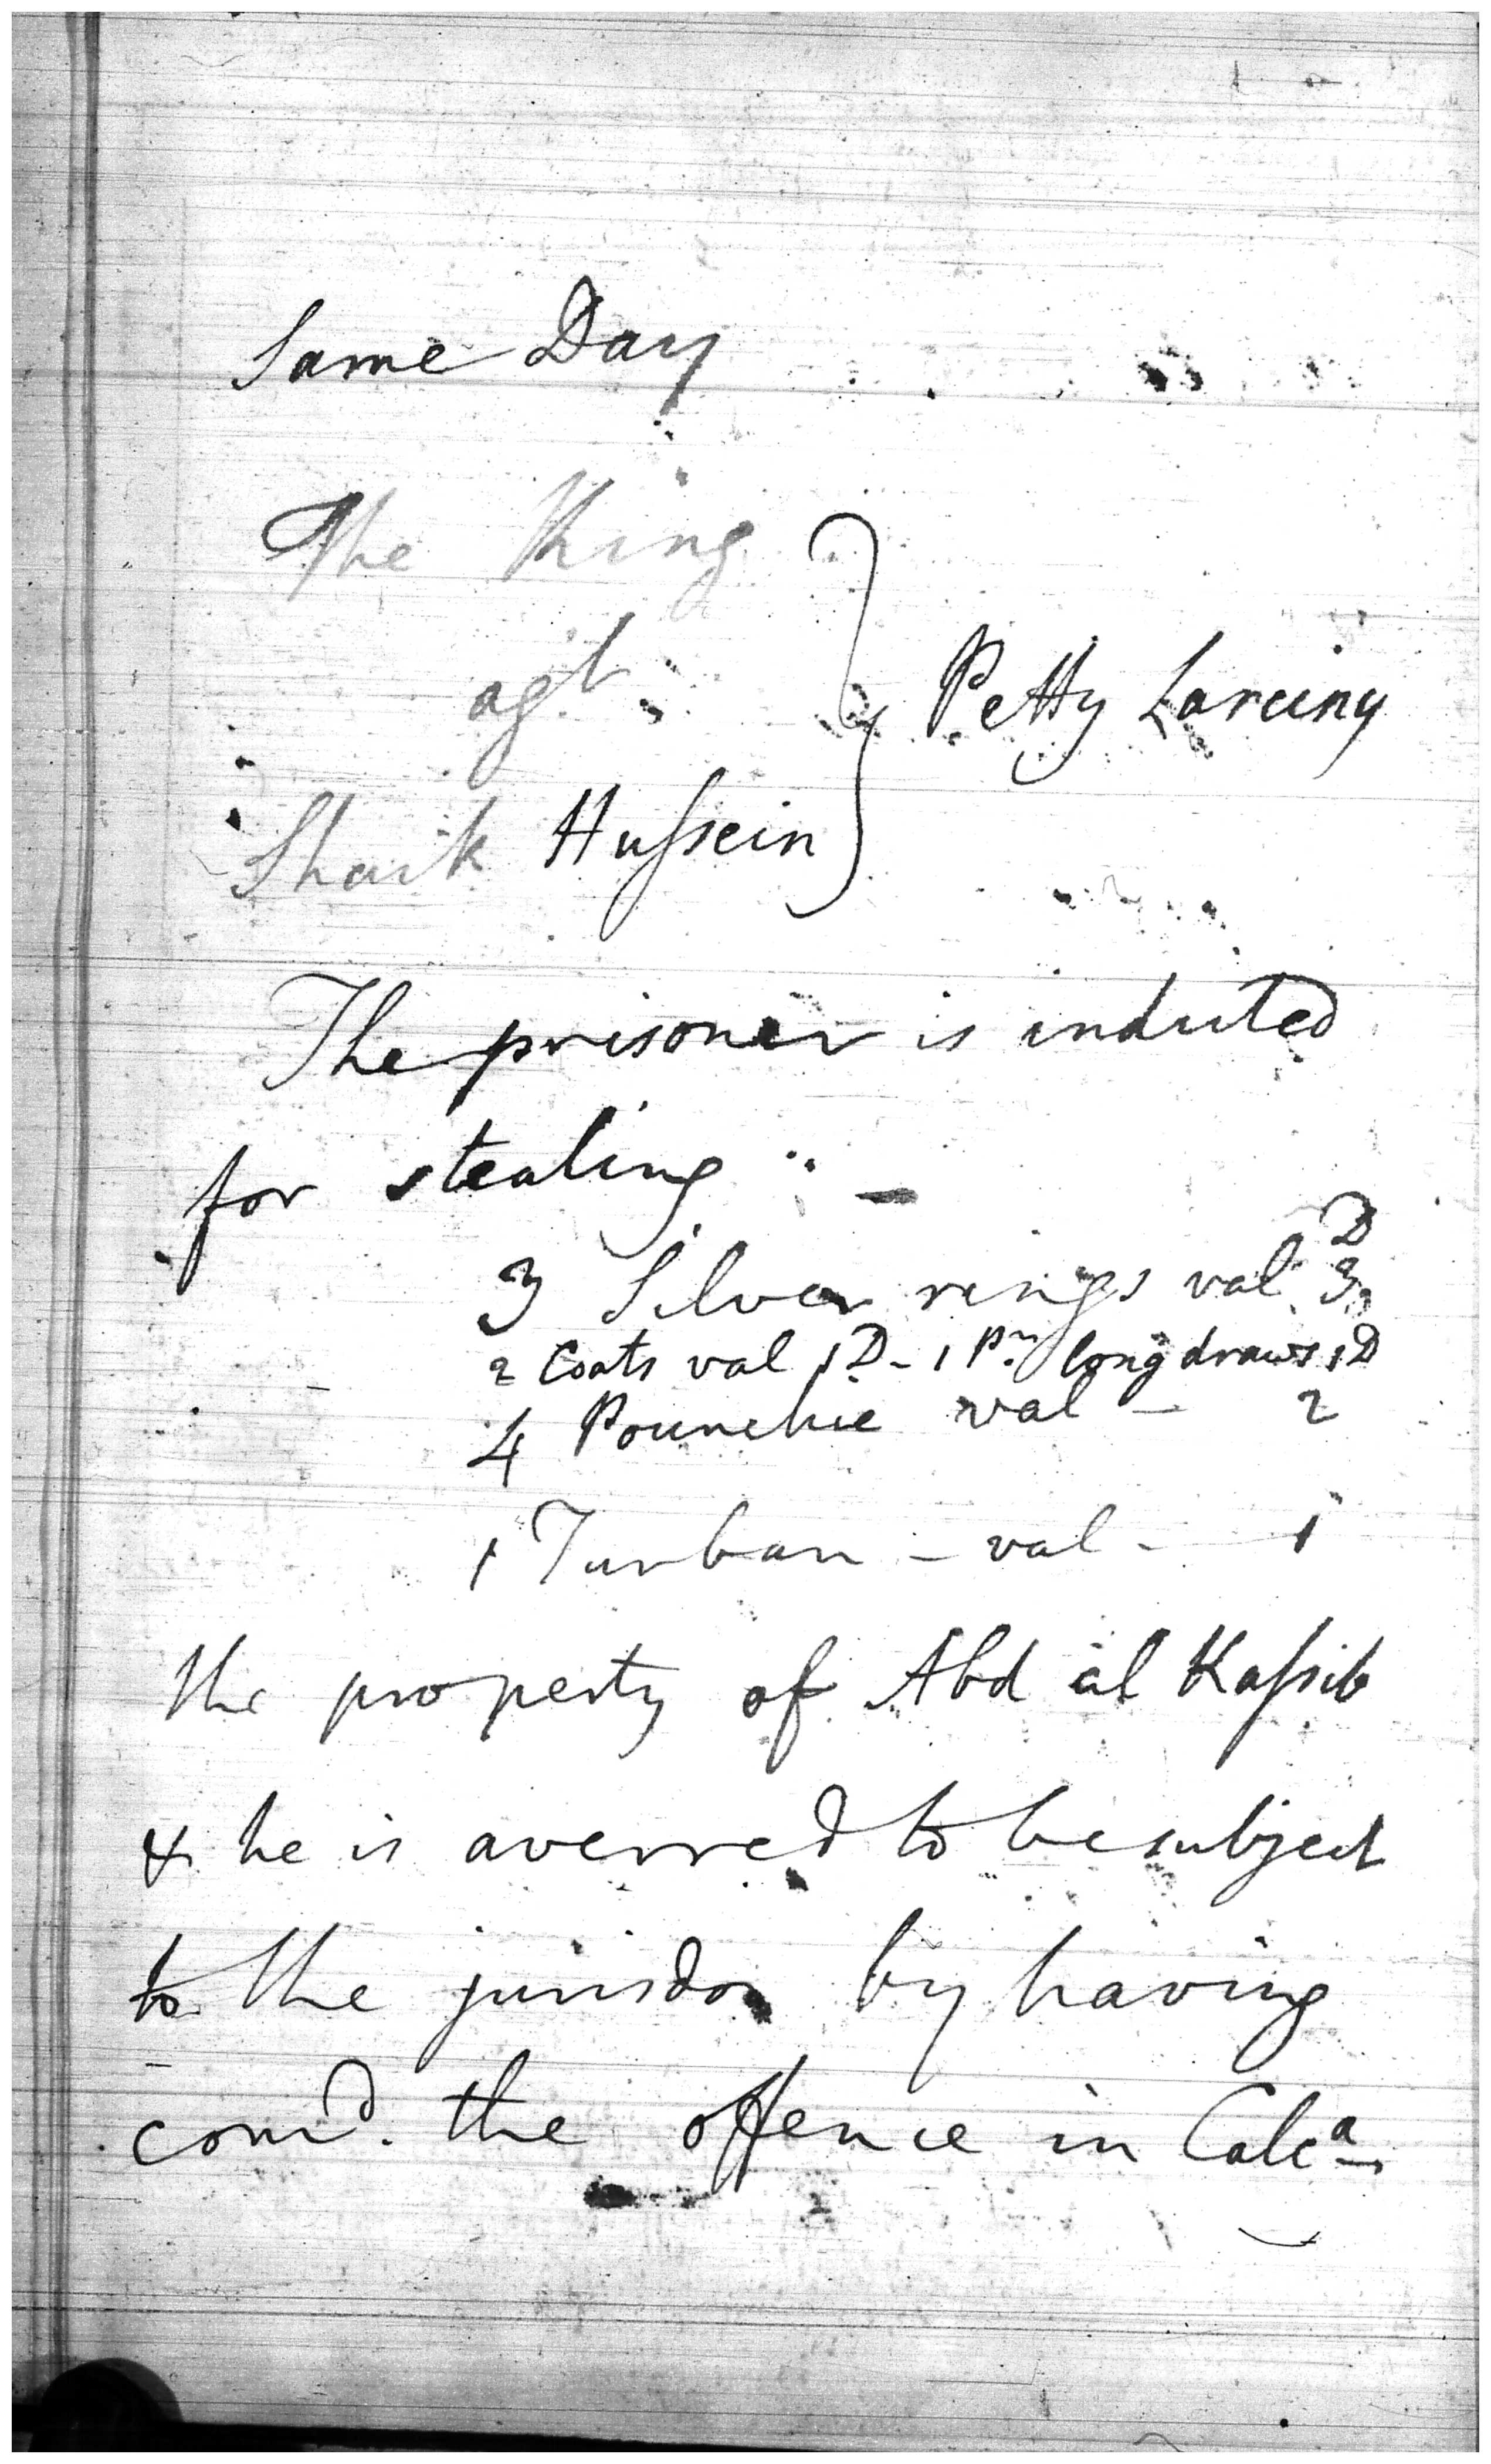 Same Day
The King
agt.
Shaik Hussein } Petty Larciny
The prisoner is indicted
for stealing
D
3 Silver rings val 3
2 Coats val 1D - 1 Pr. long draws 1D
4 Pounchie val - 2
1 Turban - val - 1
the property of Abd al Kassib
& he is averred to be subject
to the jurisdon by having
comd. the offence in Calca